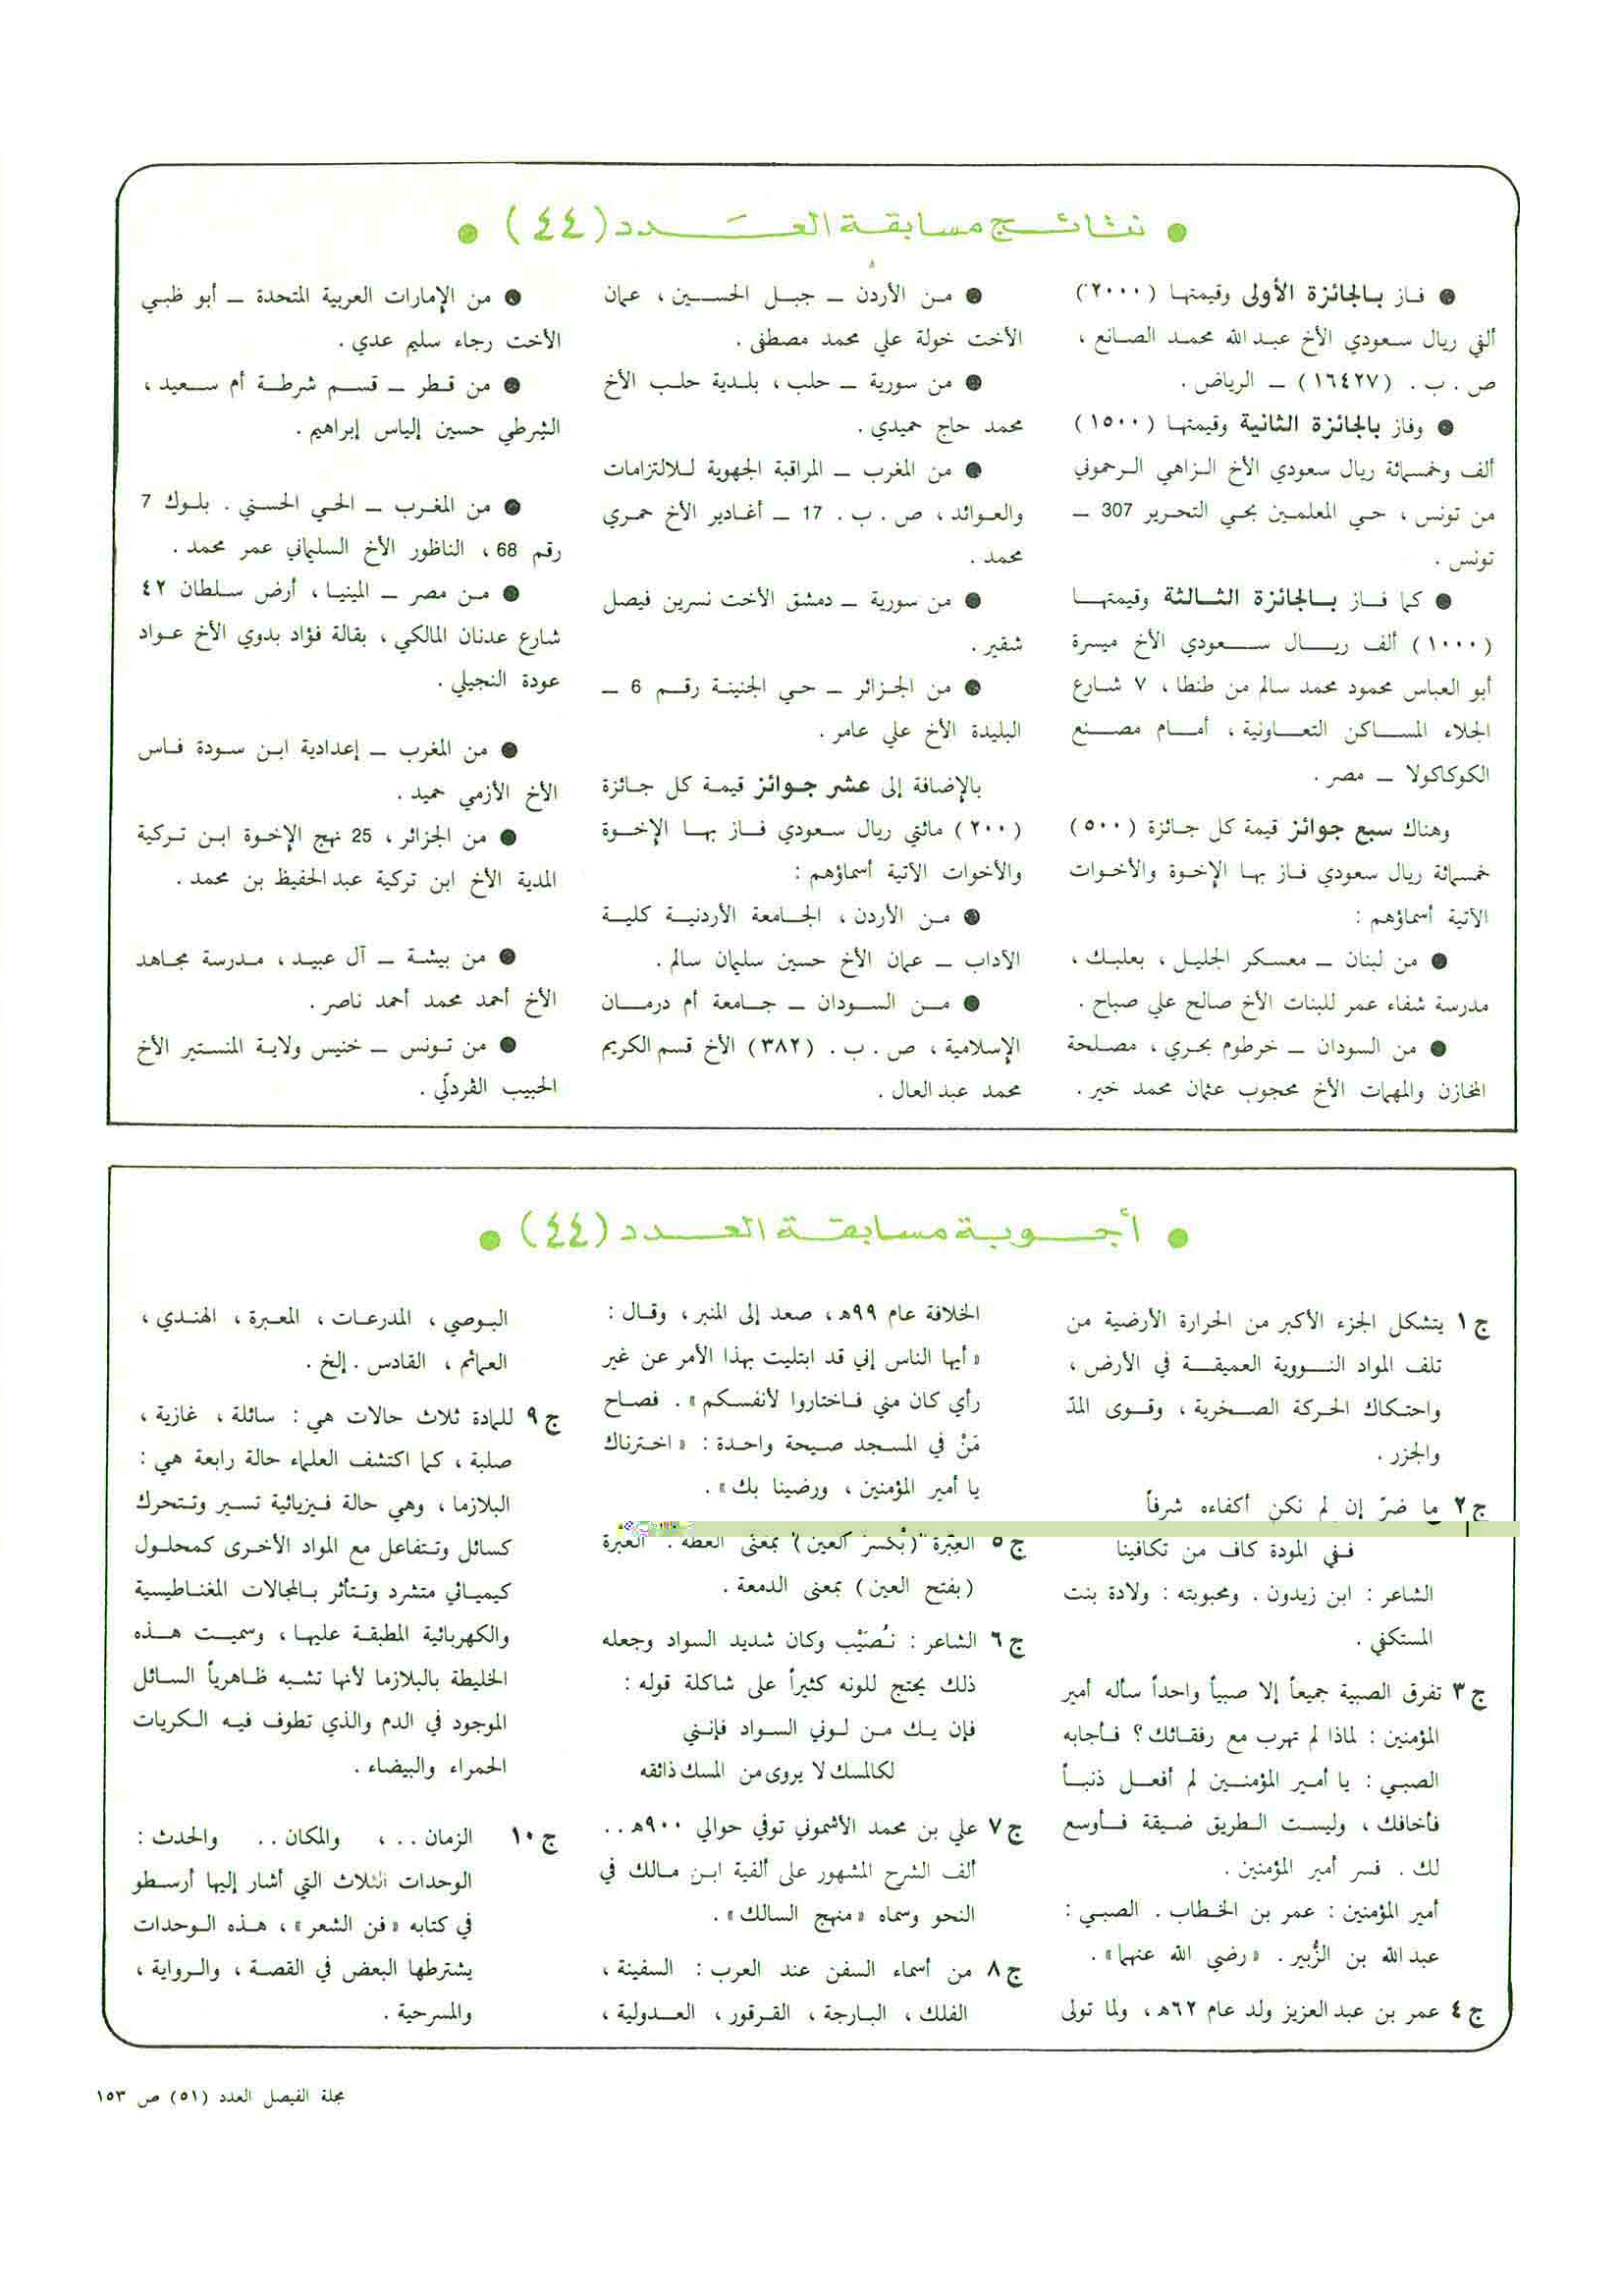 ● نتائج مسابقة العدد (٤٤) ●
● فاز بالجائزة الأولى وقيمتها (٢٠٠٠)
ألفي ريال سعودي الأخ عبد الله محمد الصانع ،
ص . ب . (١٦٤٢٧) ــ الرياض .
● وفاز بالجائزة الثانية وقيمتها (١٥٠٠)
ألف وخمسمائة ريال سعودي الأخ الزاهي الرحموني
من تونس ، حي المعلمين بحي التحرير 307 ــ
تونس .
● كما فاز بالجائزة الثالثة وقيمتها
(١٠٠٠) ألف ريال سعودي الأخ ميسرة
أبو العباس محمود محمد سالم من طنطا ، ٧ شارع
الجلاء المساكن التعاونية ، أمام مصنع
الكوكاكولا ــ مصر .
وهناك سبع جوائز قيمة كل جائزة (٥٠٠)
خمسمائة ريال سعودي فاز بها الإخوة والأخوات
الآتية أسماؤهم :
● من لبنان ــ معسكر الجليل ، بعلبك ،
مدرسة شفاء عمر للبنات الأخ صالح علي صباح .
● من السودان ــ خرطوم بحري ، مصلحة
المخازن والمهمات الأخ محجوب عثمان محمد خير .
● من الأردن ــ جبل الحسين ، عمان
الأخت خولة علي محمد مصطفى .
● من سورية ــ حلب ، بلدية حلب الأخ
محمد حاج حميدي .
● من المغرب ــ المراقبة الجهوية للالتزامات
والعوائد ، ص . ب . 17 ــ أغادير الأخ حمري
محمد .
● من سورية ــ دمشق الأخت نسرين فيصل
شقير .
● من الجزائر ــ حي الجنينة رقم 6 ــ
البليدة الأخ علي عامر .
بالإضافة إلى عشر جوائز قيمة كل جائزة
(٢٠٠) مائتي ريال سعودي فاز بها الإخوة
والأخوات الآتية أسماؤهم :
● من الأردن ، الجامعة الأردنية كلية
الآداب ــ عمان الأخ حسين سليمان سالم .
● من السودان ــ جامعة أم درمان
الإسلامية ، ص . ب . (٣٨٢) الأخ قسم الكريم
محمد عبد العال .
● من الإمارات العربية المتحدة ــ أبو ظبي
الأخت رجاء سليم عدي .
● من قطر ــ قسم شرطة أم سعيد ،
الشرطي حسين إلياس إبراهيم .
● من المغرب ــ الحي الحسني . بلوك 7
رقم 68 ، الناظور الأخ السليماني عمر محمد .
● من مصر ــ المينيا ، أرض سلطان ٤٢
شارع عدنان المالكي ، بقالة فؤاد بدوي الأخ عواد
عودة النجيلي .
● من المغرب ــ إعدادية ابن سودة فاس
الأخ الأزمي حميد .
● من الجزائر ، 25 نهج الإخوة ابن تركية
المدية الأخ ابن تركية عبد الحفيظ بن محمد .
● من بيشة ــ آل عبيد ، مدرسة مجاهد
الأخ أحمد محمد أحمد ناصر .
● من تونس ــ خنيس ولاية المنستير الأخ
الحبيب القردلّي .
● أجوبة مسابقة العدد (٤٤) ●
ج ١ يتشكل الجزء الأكبر من الحرارة الأرضية من
تلف المواد النووية العميقة في الأرض ،
واحتكاك الحركة الصخرية ، وقوى المدّ
والجزر .
ج ٢ ما ضرّ إن لم نكن أكفاءه شرفاً
ففي المودة كاف من تكافينا
الشاعر : ابن زيدون . ومحبوبته : ولادة بنت
المستكفي .
ج ٣ تفرق الصبية جميعاً إلا صبياً واحداً سأله أمير
المؤمنين : لماذا لم تهرب مع رفقائك ؟ فأجابه
الصبي : يا أمير المؤمنين لم أفعل ذنباً
فأخافك ، وليست الطريق ضيقة فأوسع
لك . فسر أمير المؤمنين .
أمير المؤمنين : عمر بن الخطاب . الصبي :
عبد الله بن الزُّبير . «رضي الله عنهما» .
ج ٤ عمر بن عبد العزيز ولد عام ٦٢هـ ، ولما تولى
الخلافة عام ٩٩هـ ، صعد إلى المنبر ، وقال :
«أيها الناس إني قد ابتليت بهذا الأمر عن غير
رأي كان مني فاختاروا لأنفسكم» . فصاح
مَنْ في المسجد صيحة واحدة : «اخترناك
يا أمير المؤمنين ، ورضينا بك» .
ج ٥ العِبْرة (بكسر العين) بمعنى العظة . العَبرة
(بفتح العين) بمعنى الدمعة .
ج ٦ الشاعر : نُصَيْب وكان شديد السواد وجعله
ذلك يحتج للونه كثيراً على شاكلة قوله :
فإن يك من لوني السواد فإنني
لكالمسك لا يروى من المسك ذائقه
ج ٧ علي بن محمد الأشموني توفي حوالي ٩٠٠هـ . .
ألف الشرح المشهور على ألفية ابن مالك في
النحو وسماه «منهج السالك» .
ج ٨ من أسماء السفن عند العرب : السفينة ،
الفلك ، البارجة ، القرقور ، العدولية ،
البوصي ، المدرعات ، المعبرة ، الهندي ،
العمائم ، القادس . إلخ .
ج ٩ للمادة ثلاث حالات هي : سائلة ، غازية ،
صلبة ، كما اكتشف العلماء حالة رابعة هي :
البلازما ، وهي حالة فيزيائية تسير وتتحرك
كسائل وتتفاعل مع المواد الأخرى كمحلول
كيميائي متشرد وتتأثر بالمجالات المغناطيسية
والكهربائية المطبقة عليها ، وسميت هذه
الخليطة بالبلازما لأنها تشبه ظاهرياً السائل
الموجود في الدم والذي تطوف فيه الكريات
الحمراء والبيضاء .
ج ١٠ الزمان . . ، والمكان . . والحدث :
الوحدات الثلاث التي أشار إليها أرسطو
في كتابه «فن الشعر» ، هذه الوحدات
يشترطها البعض في القصة ، والرواية ،
والمسرحية .
مجلة الفيصل العدد (٥١) ص ١٥٣